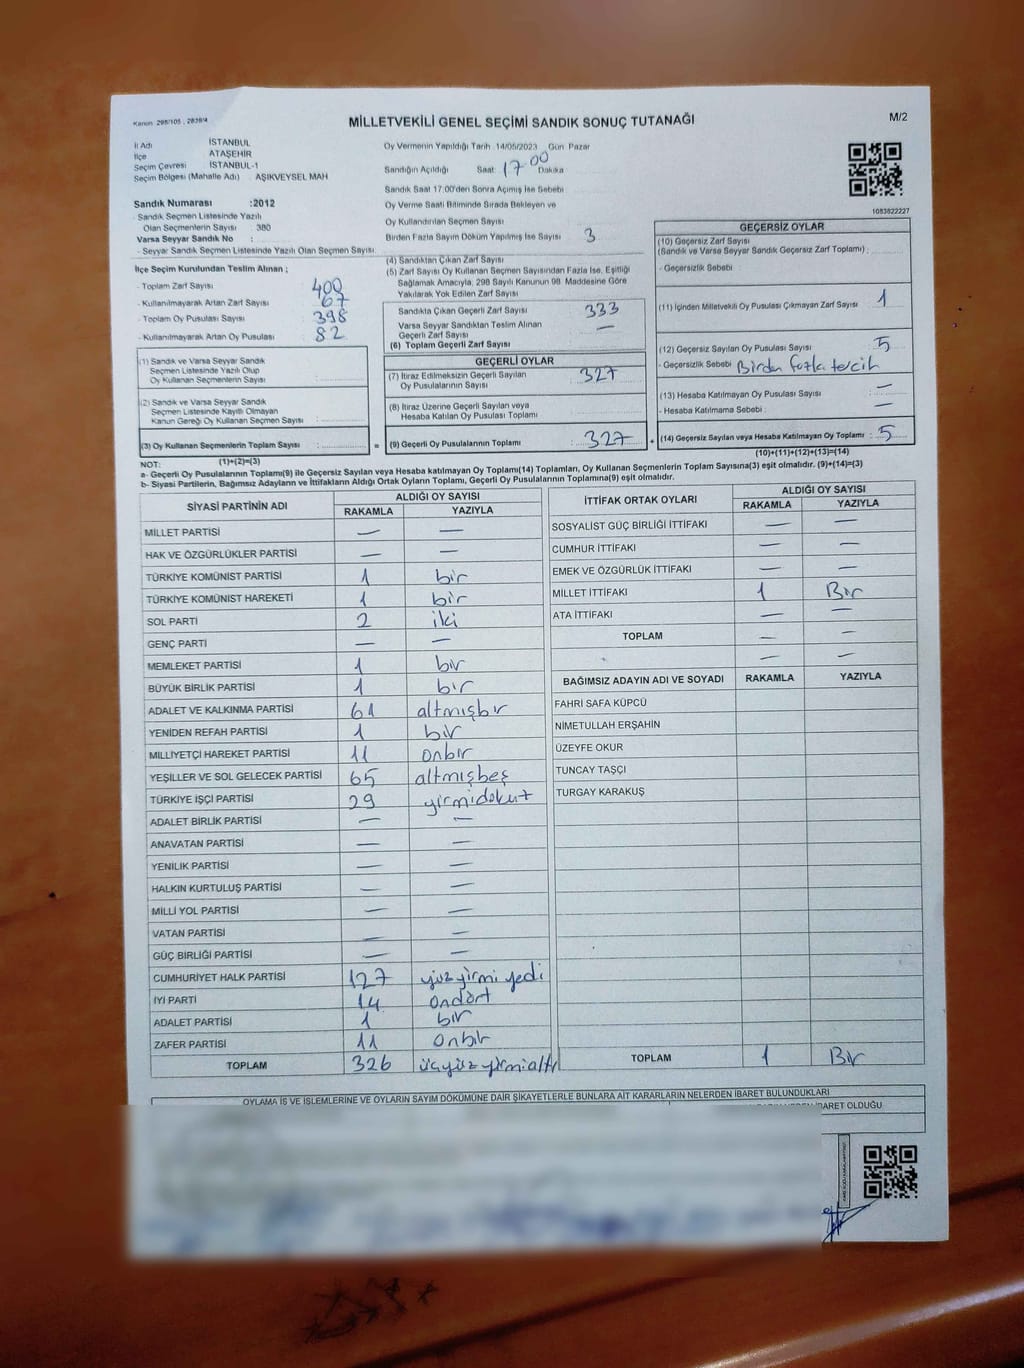 Kanun 298/105 , 2839/4
MİLLETVEKİLİ GENEL SEÇİMİ SANDIK SONUÇ TUTANAĞI
M/2
İl Adı : İSTANBUL
İlçe : ATAŞEHİR
Seçim Çevresi : İSTANBUL-1
Seçim Bölgesi (Mahalle Adı) : AŞIKVEYSEL MAH
Oy Vermenin Yapıldığı Tarih 14/05/2023 Gün Pazar
Sandığın Açıldığı Saat 17 00 Dakika
Sandık Saat 17:00'den Sonra Açımış İse Sebebi
Oy Verme Saati Bitiminde Sırada Bekleyen ve
Oy Kullandırılan Seçmen Sayısı
Birden Fazla Sayım Döküm Yapılmış İse Sayısı 3
1083822227
Sandık Numarası :2012
- Sandık Seçmen Listesinde Yazılı
Olan Seçmenlerin Sayısı : 380
Varsa Seyyar Sandık No :
- Seyyar Sandık Seçmen Listesinde Yazılı Olan Seçmen Sayısı
İlçe Seçim Kurulundan Teslim Alınan ;
- Toplam Zarf Sayısı 400
- Kullanılmayarak Artan Zarf Sayısı 67
- Toplam Oy Pusulası Sayısı 398
- Kullanılmayarak Artan Oy Pusulası 82
(1) Sandık ve Varsa Seyyar Sandık
Seçmen Listesinde Yazılı Olup
Oy Kullanan Seçmenlerin Sayısı :
(2) Sandık ve Varsa Seyyar Sandık
Seçmen Listesinde Kayıtlı Olmayan
Kanun Gereği Oy Kullanan Seçmen Sayısı :
(3) Oy Kullanan Seçmenlerin Toplam Sayısı :
(1)+(2)=(3)
(4) Sandıktan Çıkan Zarf Sayısı
(5) Zarf Sayısı Oy Kullanan Seçmen Sayısından Fazla İse, Eşitliği
Sağlamak Amacıyla, 298 Sayılı Kanunun 98. Maddesine Göre
Yakılarak Yok Edilen Zarf Sayısı
Sandıkta Çıkan Geçerli Zarf Sayısı 333
Varsa Seyyar Sandıktan Teslim Alınan
Geçerli Zarf Sayısı —
(6) Toplam Geçerli Zarf Sayısı
GEÇERLİ OYLAR
(7) İtiraz Edilmeksizin Geçerli Sayılan
Oy Pusulalarının Sayısı : 327
(8) İtiraz Üzerine Geçerli Sayılan veya
Hesaba Katılan Oy Pusulası Toplamı :
= (9) Geçerli Oy Pusulalarının Toplamı : 327 +
GEÇERSİZ OYLAR
(10) Geçersiz Zarf Sayısı
(Sandık ve Varsa Seyyar Sandık Geçersiz Zarf Toplamı) :
- Geçersizlik Sebebi :
(11) İçinden Milletvekili Oy Pusulası Çıkmayan Zarf Sayısı 1
(12) Geçersiz Sayılan Oy Pusulası Sayısı 5
- Geçersizlik Sebebi : Birden fazla tercih
(13) Hesaba Katılmayan Oy Pusulası Sayısı —
- Hesaba Katılmama Sebebi : —
(14) Geçersiz Sayılan veya Hesaba Katılmayan Oy Toplamı : 5
(10)+(11)+(12)+(13)=(14)
NOT:
a- Geçerli Oy Pusulalarının Toplamı(9) ile Geçersiz Sayılan veya Hesaba katılmayan Oy Toplamı(14) Toplamları, Oy Kullanan Seçmenlerin Toplam Sayısına(3) eşit olmalıdır. (9)+(14)=(3)
b- Siyasi Partilerin, Bağımsız Adayların ve İttifakların Aldığı Ortak Oyların Toplamı, Geçerli Oy Pusulalarının Toplamına(9) eşit olmalıdır.
SİYASİ PARTİNİN ADI ALDIĞI OY SAYISI
RAKAMLA YAZIYLA
MİLLET PARTİSİ — —
HAK VE ÖZGÜRLÜKLER PARTİSİ — —
TÜRKİYE KOMÜNİST PARTİSİ 1 bir
TÜRKİYE KOMÜNİST HAREKETİ 1 bir
SOL PARTİ 2 iki
GENÇ PARTİ — —
MEMLEKET PARTİSİ 1 bir
BÜYÜK BİRLİK PARTİSİ 1 bır
ADALET VE KALKINMA PARTİSİ 61 altmışbır
YENİDEN REFAH PARTİSİ 1 bir
MİLLİYETÇİ HAREKET PARTİSİ 11 onbır
YEŞİLLER VE SOL GELECEK PARTİSİ 65 altmışbeş
TÜRKİYE İŞÇİ PARTİSİ 29 yirmidokuz
ADALET BİRLİK PARTİSİ — —
ANAVATAN PARTİSİ — —
YENİLİK PARTİSİ — —
HALKIN KURTULUŞ PARTİSİ — —
MİLLİ YOL PARTİSİ — —
VATAN PARTİSİ — —
GÜÇ BİRLİĞİ PARTİSİ — —
CUMHURİYET HALK PARTİSİ 127 yüz yirmi yedi
İYİ PARTİ 14 ondört
ADALET PARTİSİ 1 bır
ZAFER PARTİSİ 11 onbır
TOPLAM 326 üçyüz yirmialtı
İTTİFAK ORTAK OYLARI ALDIĞI OY SAYISI
RAKAMLA YAZIYLA
SOSYALİST GÜÇ BİRLİĞİ İTTİFAKI — —
CUMHUR İTTİFAKI — —
EMEK VE ÖZGÜRLÜK İTTİFAKI — —
MİLLET İTTİFAKI 1 Bır
ATA İTTİFAKI — —
TOPLAM — —
— —
BAĞIMSIZ ADAYIN ADI VE SOYADI RAKAMLA YAZIYLA
FAHRİ SAFA KÜPCÜ
NİMETULLAH ERŞAHİN
ÜZEYFE OKUR
TUNCAY TAŞÇI
TURGAY KARAKUŞ
TOPLAM 1 Bır
OYLAMA İŞ VE İŞLEMLERİNE VE OYLARIN SAYIM DÖKÜMÜNE DAİR ŞİKAYETLERLE BUNLARA AİT KARARLARIN NELERDEN İBARET BULUNDUKLARI
İBARET OLDUĞU